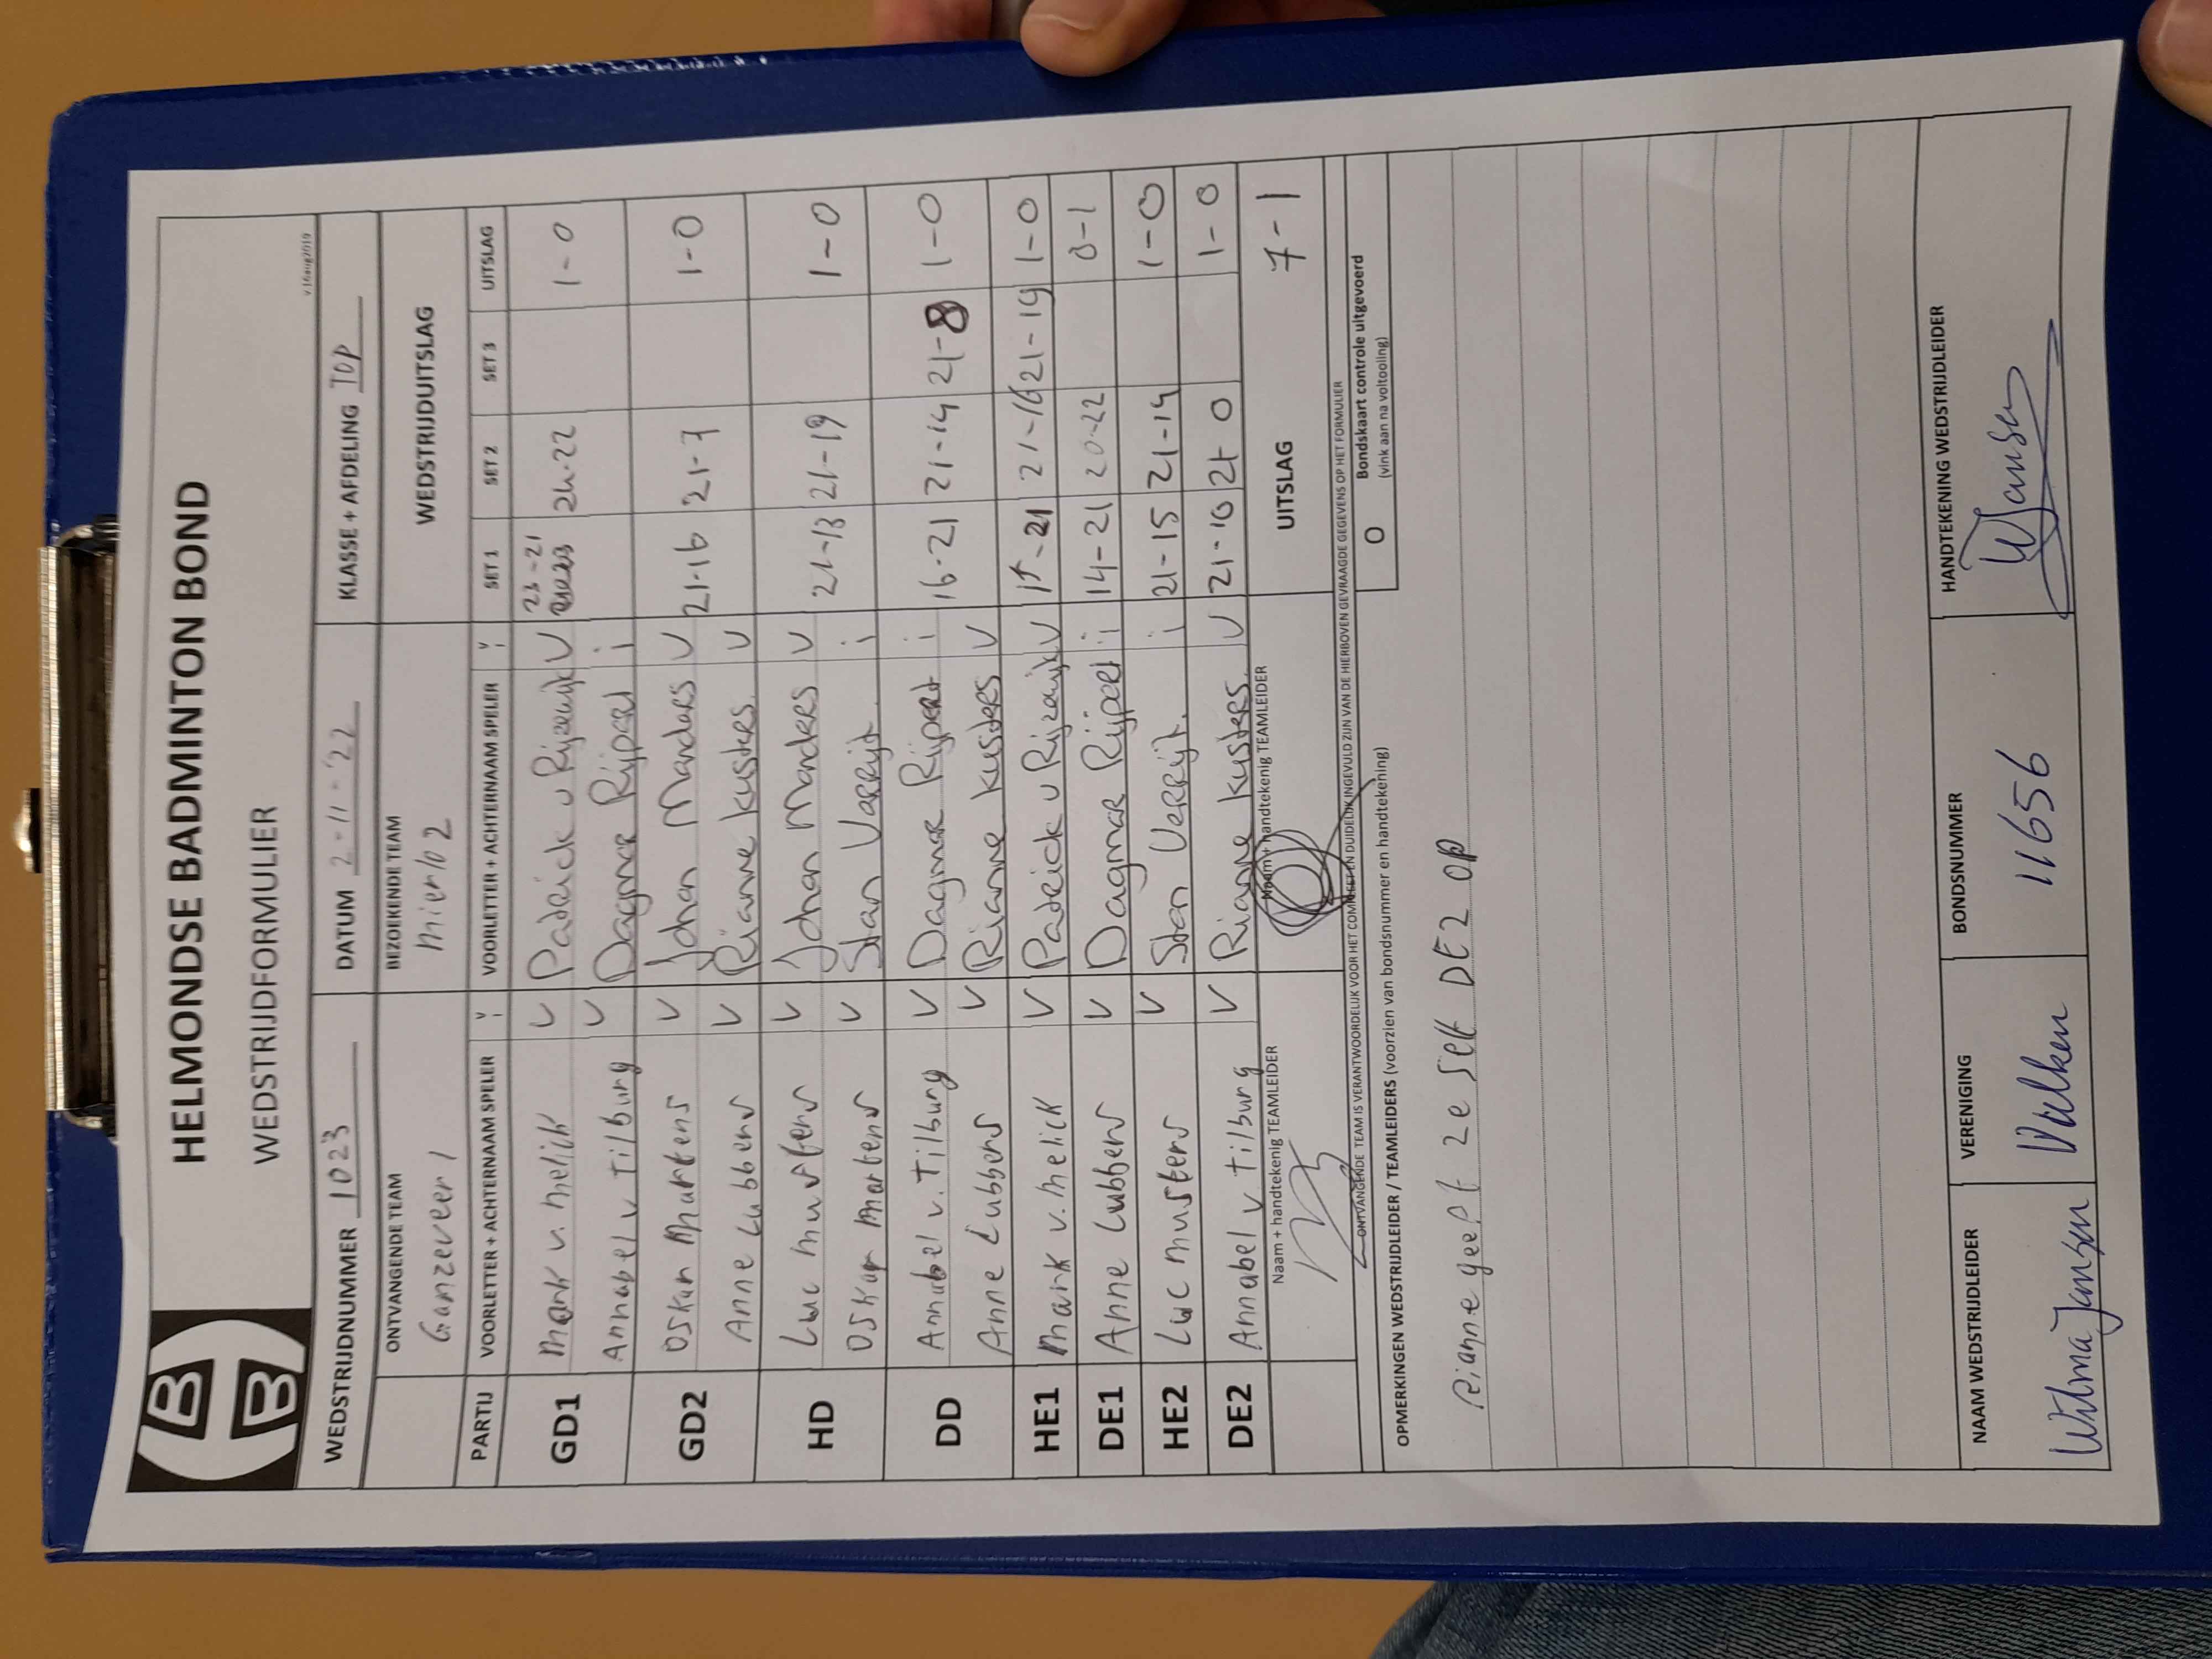 HBB
HELMONDSE BADMINTON BOND
WEDSTRIJDFORMULIER
v.16aug2019
WEDSTRIJDNUMMER 1023 DATUM 2-11-'22 KLASSE + AFDELING TOP
ONTVANGENDE TEAM BEZOEKENDE TEAM WEDSTRIJDUITSLAG
Ganzeveer 1 Mierlo 2
PARTIJ VOORLETTER + ACHTERNAAM SPELER V i VOORLETTER + ACHTERNAAM SPELER V i SET 1 SET 2 SET 3 UITSLAG
GD1 Mark v. Melick V Patrick v Rijzewijk V 23-21 24-22 1-0
Annabel v Tilburg V Dagmar Rijpert i
GD2 Oskar Martens V Johan Manders V 21-16 21-7 1-0
Anne Lubbers V Rianne Kusters V
HD Luc Musters V Johan Manders V 21-13 21-19 1-0
Oskar Martens V Stan Verrijt. i
DD Annabel v. Tilburg V Dagmar Rijpert i 16-21 21-14 21-8 1-0
Anne Lubbers V Rianne Kusters V
HE1 Mark v. Melick V Patrick v Rijzewijk V -21 21-16 21-19 1-0
DE1 Anne Lubbers V Dagmar Rijpert i 14-21 20-22 0-1
HE2 Luc Musters V Stan Verrijt. i 21-15 21-14 1-0
DE2 Annabel v Tilburg V Rianne Kusters. V 21-10 21-0 1-0
Naam + handtekenig TEAMLEIDER Naam + handtekenig TEAMLEIDER UITSLAG 7-1
ONTVANGENDE TEAM IS VERANTWOORDELIJK VOOR HET COMPLEET EN DUIDELIJK INGEVULD ZIJN VAN DE HIERBOVEN GEVRAAGDE GEGEVENS OP HET FORMULIER
O Bondskaart controle uitgevoerd
(vink aan na voltooiing)
OPMERKINGEN WEDSTRIJDLEIDER / TEAMLEIDERS (voorzien van bondsnummer en handtekening)
Rianne geeft 2e set DE2 op
NAAM WEDSTRIJDLEIDER VERENIGING BONDSNUMMER HANDTEKENING WEDSTRIJDLEIDER
Wilma Jansen 11656 WJansen